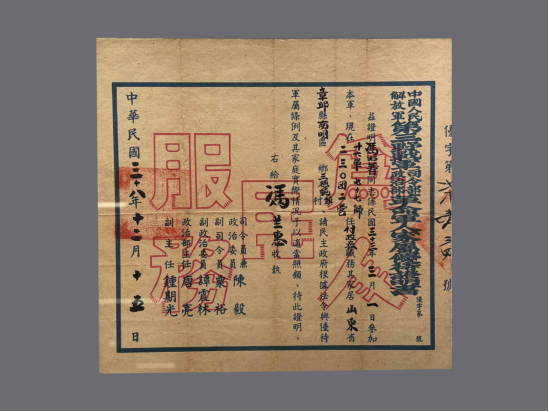 中國人民解放軍第三野戰軍司令部政治部革命軍人家屬優待證明書
優字第
號
茲證明馮
同志係民國三十三年三月一日參加
本軍，現在
師二三〇團二營
任
職務其家居山東省
章邱縣
明區
鄉
村，請民主政府根據法令與優待
軍屬條例及其家庭實際情况予以適當照顧、特此證明，
右給
馮
惠收執
司令員兼政治委員陳毅
副司令員粟裕
副政治委員譚震林
政治部主任唐亮
副主任鍾期光
中華民國三十八年十二月十五日
為人民服務